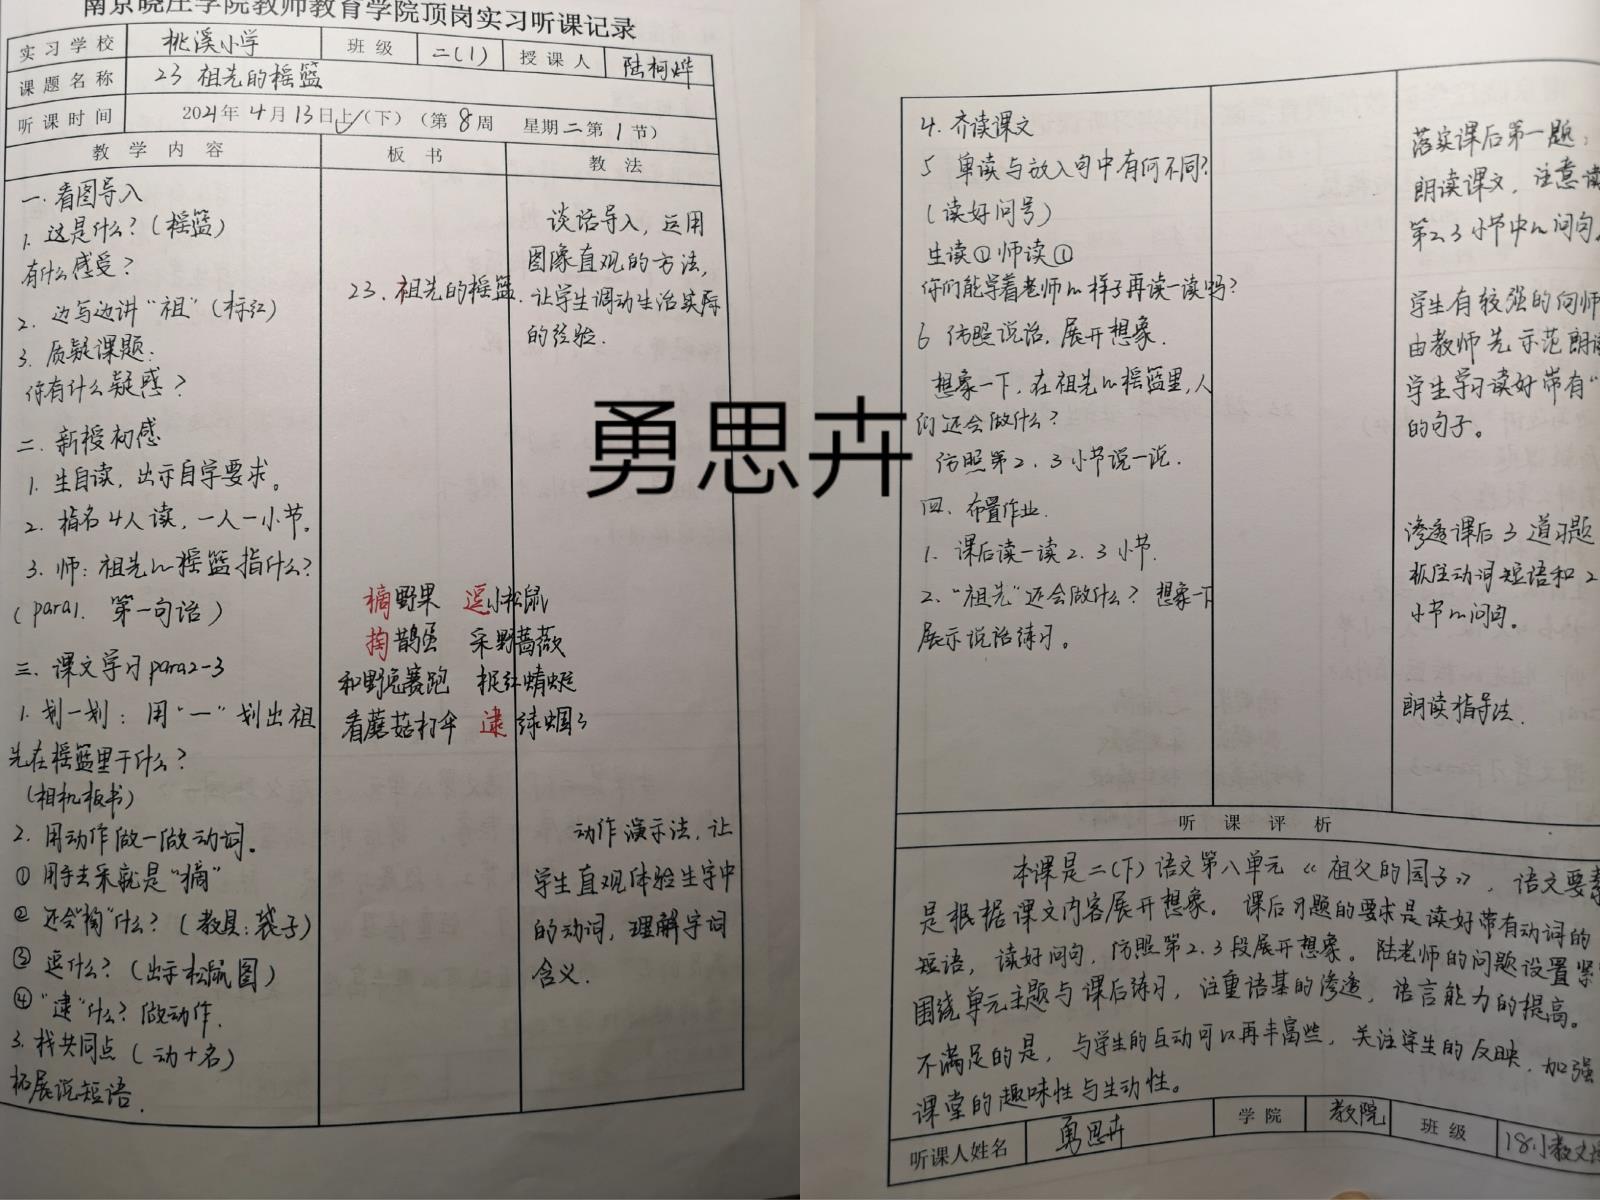 南京晓庄学院教师教育学院顶岗实习听课记录
实习学校 桃溪小学 班级 二(1) 授课人 陆柯烨
课题名称 23 祖先的摇篮
听课时间 2021年4月13日上(下)(第8周 星期二第1节)
教学内容 板书 教法
一.看图导入
1.这是什么?(摇篮)
有什么感受?
2.边写边讲“祖”(标红)
3.质疑课题:
你有什么疑惑?
二.新授初感
1.生自读,出示自学要求。
2.指名4人读,一人一小节。
3.师:祖先的摇篮指什么?
(para1.第一句话)
三.课文学习para2-3
1.划一划:用“—”划出祖
先在摇篮里干什么?
(相机板书)
2.用动作做一做动词。
①用手去采就是“摘”
②还会“掏”什么?(教具:袋子)
③逗什么?(出示松鼠图)
④“逮”什么?做动作.
3.找共同点(动+名)
拓展说短语.
23.祖先的摇篮.
摘野果 逗小松鼠
掏鹊蛋 采野蔷薇
和野兔赛跑 捉红蜻蜓
看蘑菇打伞 逮绿蝈蝈
谈话导入,运用
图像直观的方法,
让学生调动生活实际
的经验.
动作演示法,让
学生直观体验生字中
的动词,理解字词
含义.
勇思卉
4.齐读课文
5 单读与放入句中有何不同?
(读好问号)
生读① 师读①
你们能学着老师的样子再读一读吗?
6 仿照说话,展开想象.
想象一下,在祖先的摇篮里,人
们还会做什么?
仿照第2.3小节说一说.
四、布置作业.
1.课后读一读2.3小节.
2.“祖先”还会做什么?想象一下
展示说话练习。
落实课后第一题:
朗读课文,注意读
第2.3小节中的问句。
学生有较强的向师
由教师先示范朗读
学生学习读好带有“
的句子。
渗透课后3道习题
抓住动词短语和2
小节的问句。
朗读指导法.
听课评析
本课是二(下)语文第八单元《祖父的园子》,语文要素
是根据课文内容展开想象。课后习题的要求是读好带有动词的
短语,读好问句,仿照第2.3段展开想象。陆老师的问题设置紧
围绕单元主题与课后练习,注重语基的渗透,语言能力的提高。
不满足的是,与学生的互动可以再丰富些,关注学生的反映,加强
课堂的趣味性与生动性。
听课人姓名 勇思卉 学院 教院 班级 18小教文